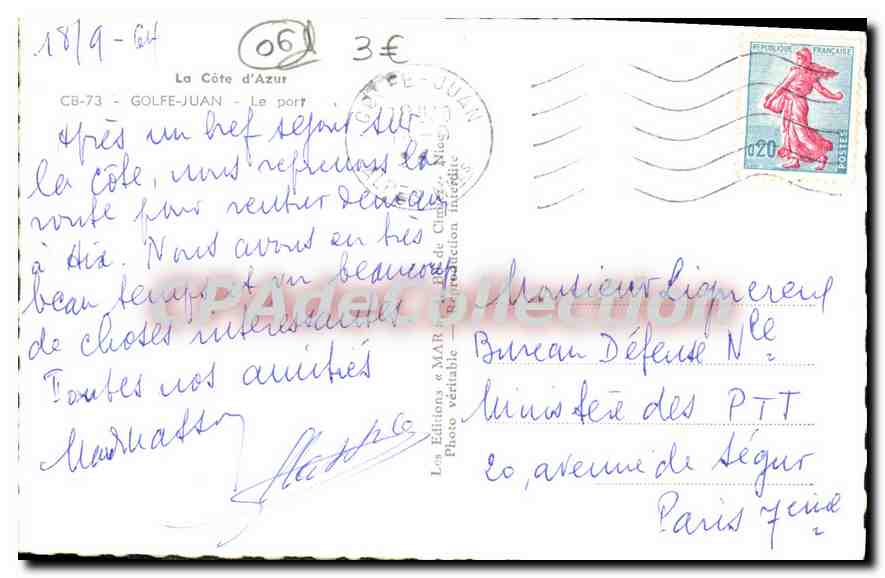 18/9-64
06
3€
La Côte d'Azur
CB-73 - GOLFE-JUAN - Le port
Après un bref séjour sur
la côte, nous reprenons la
route pour rentrer demain
à Aix. Nous avons eu très
beau temps et vu beaucoup
de choses intéressantes
Toutes nos amitiés
Les Editions « MAR » Bd de Cimiez - Nice
Photo véritable - Reproduction interdite
GOLFE-JUAN
REPUBLIQUE FRANÇAISE
0,20
POSTES
Monsieur
Bureau Défense Nle
Ministère des PTT
20, avenue de Ségur
Paris 7ème
CPAdeCollection